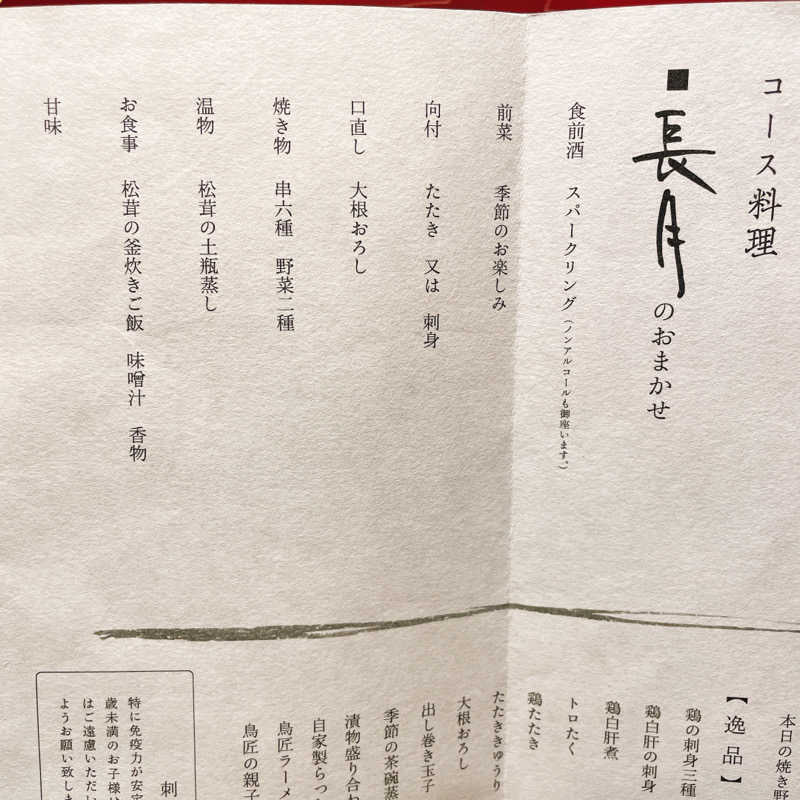 コース料理
■長月のおまかせ
食前酒 スパークリング（ノンアルコールも御座います。）
前菜 季節のお楽しみ
向付 たたき 又は 刺身
口直し 大根おろし
焼き物 串六種 野菜二種
温物 松茸の土瓶蒸し
お食事 松茸の釜炊きご飯 味噌汁 香物
甘味
本日の焼き野
【逸品】
鶏の刺身三種
鶏白肝の刺身
鶏白肝煮
トロたく
鶏たたき
たたききゅうり
大根おろし
出し巻き玉子
季節の茶碗蒸
漬物盛り合わ
自家製らっ
鳥匠ラーメ
鳥匠の親子
刺
特に免疫力が安定
歳未満のお子様は
はご遠慮いただい
ようお願い致しま